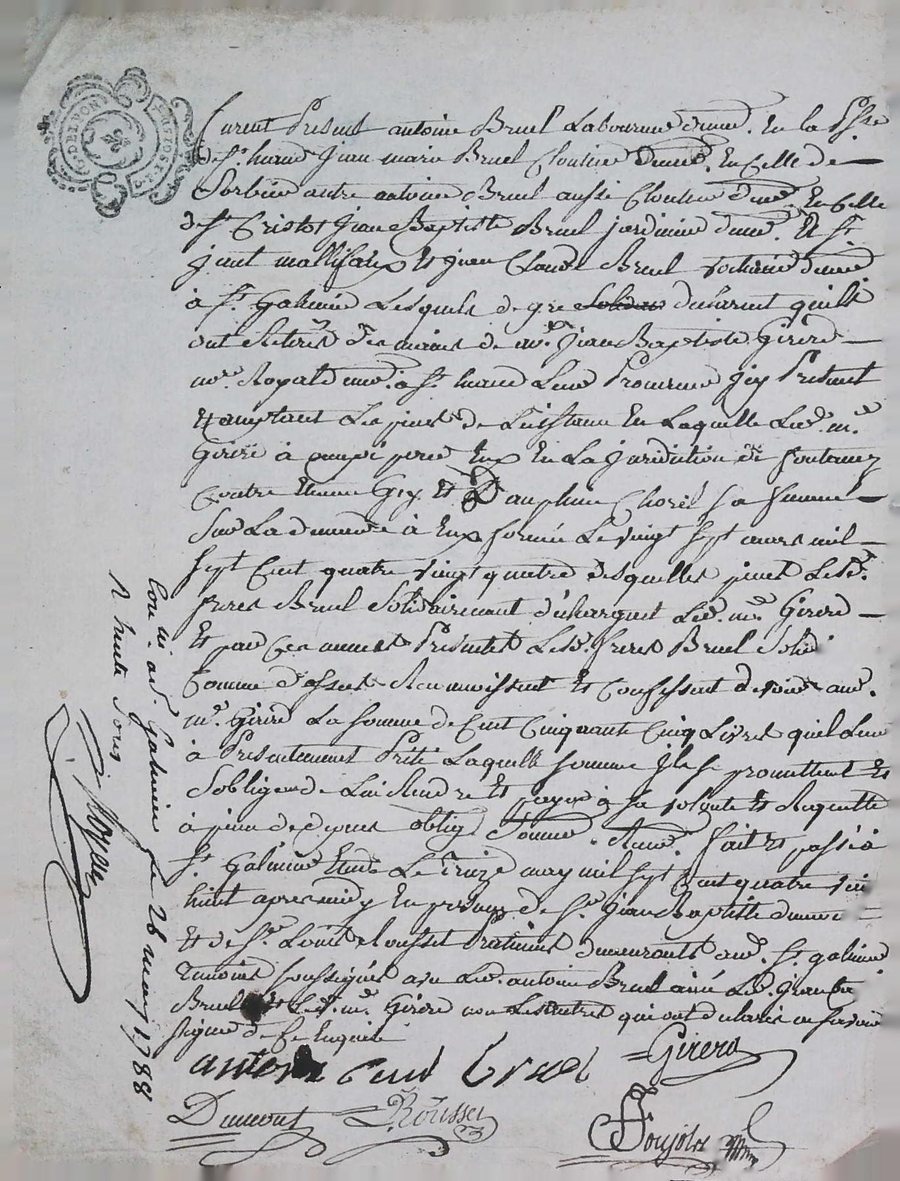 GENER DE LYON
Furent Présents antoine Bruel Laboureur demt. En la Psse
de St. haand Jean marie Bruel Cloutier demt. En Celle de
Sorbier autre antoine Bruel aussi Cloutier demt. En Celle
de St Cristot Jean Baptiste Bruel jardinier demt. A St.
Jenit mallifaux et jean Claude Bruel demt
à St. Galmier Lesquels de gre declarent quils
ont Retirés des mains de me. Jean Baptiste Girerd
nore. Royal demt. à St. haand Leur Procureur Icy Présent
Et aceptant Les pieces de L'instance En Laquelle Led. me.
Girerd à occupé pour Eux En La Juridiction de fontanez
Contre Etienne Gex et Dauphine Chorel Sa femme
Sur La demande à Eux formée Le vingt Sept mars mil
Sept Cent quatre vingt quatre desquelles pieces Lesds.
freres Bruel Solidairement déchargent Led. me. Girerd
Et par Ces mêmes Présentes Lesd. freres Bruel Solid.
Comme dessus Reconnoissent et Confessent devoir aud.
me. Girerd La Somme de Cent Cinquante Cinq Livres quil Leur
à Présentement Prété Laquelle Somme Ils promettent Et
Sobligent de Lui Rendre Et payer à Sa volonté Et Requette
à peine de dépens oblig. Soum. Renon. fait et passé à
St. Galmier Etude Le Treize may mil Sept Cent quatre vin
huit apres midy En présence de Sr. Jean Baptiste dumont
Et de Sr. Louis Rousset Praticiens demeurants aud. St. galmier
Temoins soussignés avec Led. antoine Bruel ainé Led. Jean Bte
Bruel Et Led. me. Girerd non Les autres qui ont declaré ne Savoir
Signer de Ce Enquis
antoine bruel Girerd
Dumont Rousset
Poujolas
Con. à St. Galmier Le 26 may 1788
R. trente Sous